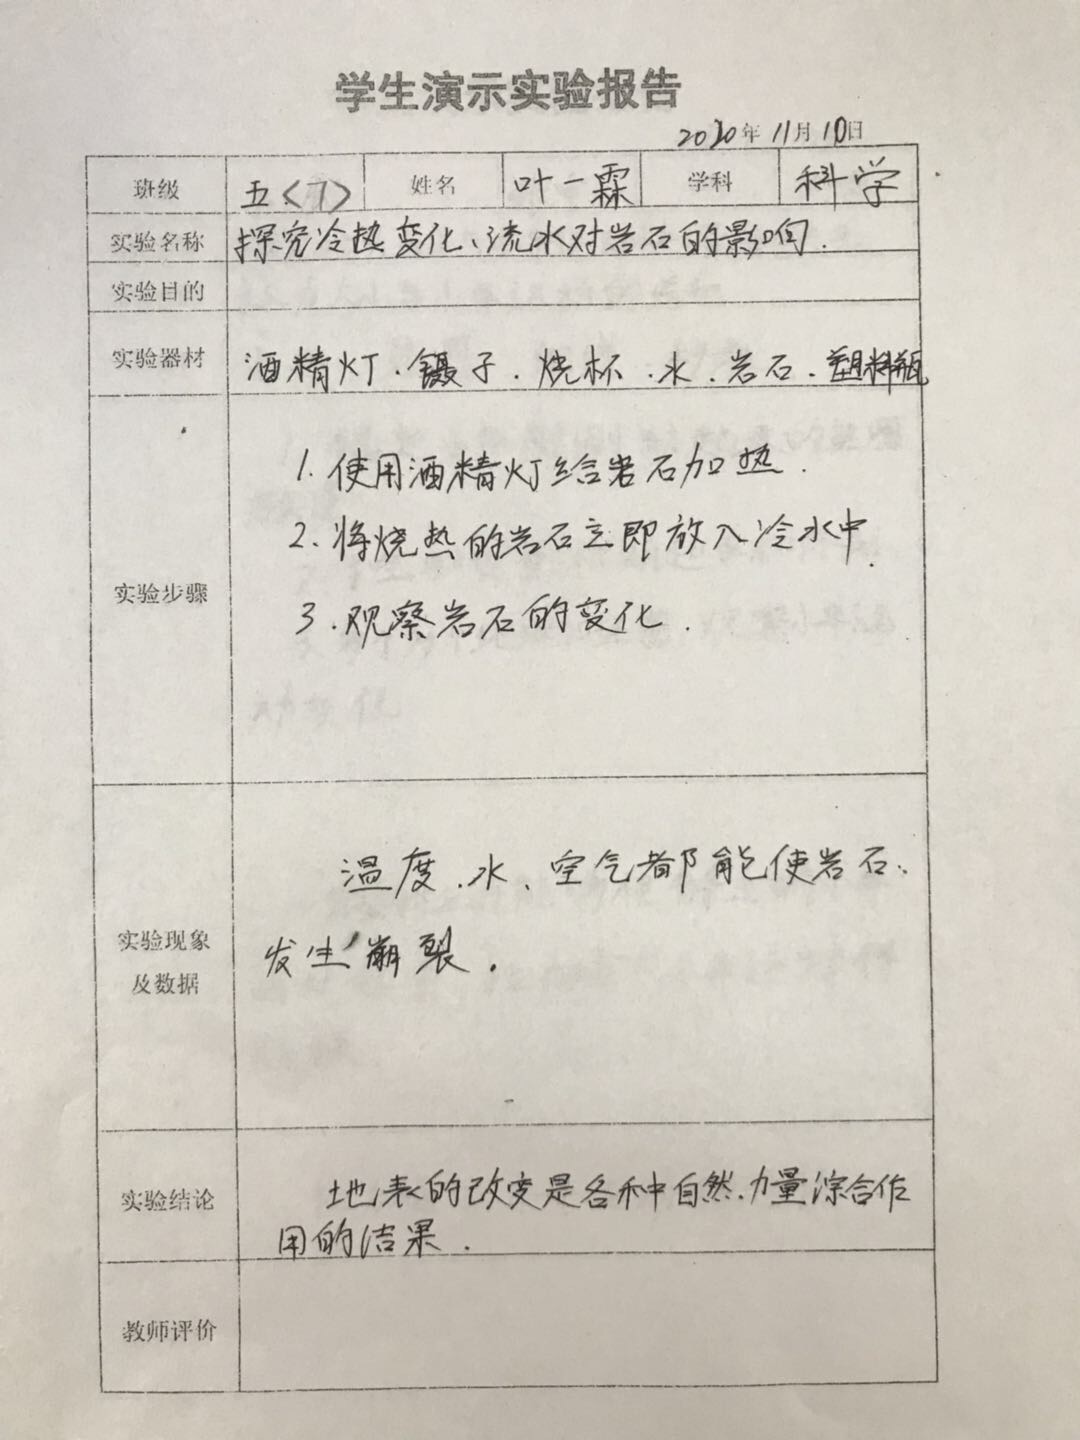 学生演示实验报告
2020年11月10日
班级 五〈7〉 姓名 叶一霖 学科 科学
实验名称 探究冷热变化、流水对岩石的影响.
实验目的
实验器材 酒精灯.镊子.烧杯.水.岩石.塑料瓶
实验步骤
1.使用酒精灯给岩石加热.
2.将烧热的岩石立即放入冷水中.
3.观察岩石的变化.
实验现象
及数据
温度.水、空气都能使岩石
发生崩裂.
实验结论
地表的改变是各种自然力量综合作
用的结果.
教师评价